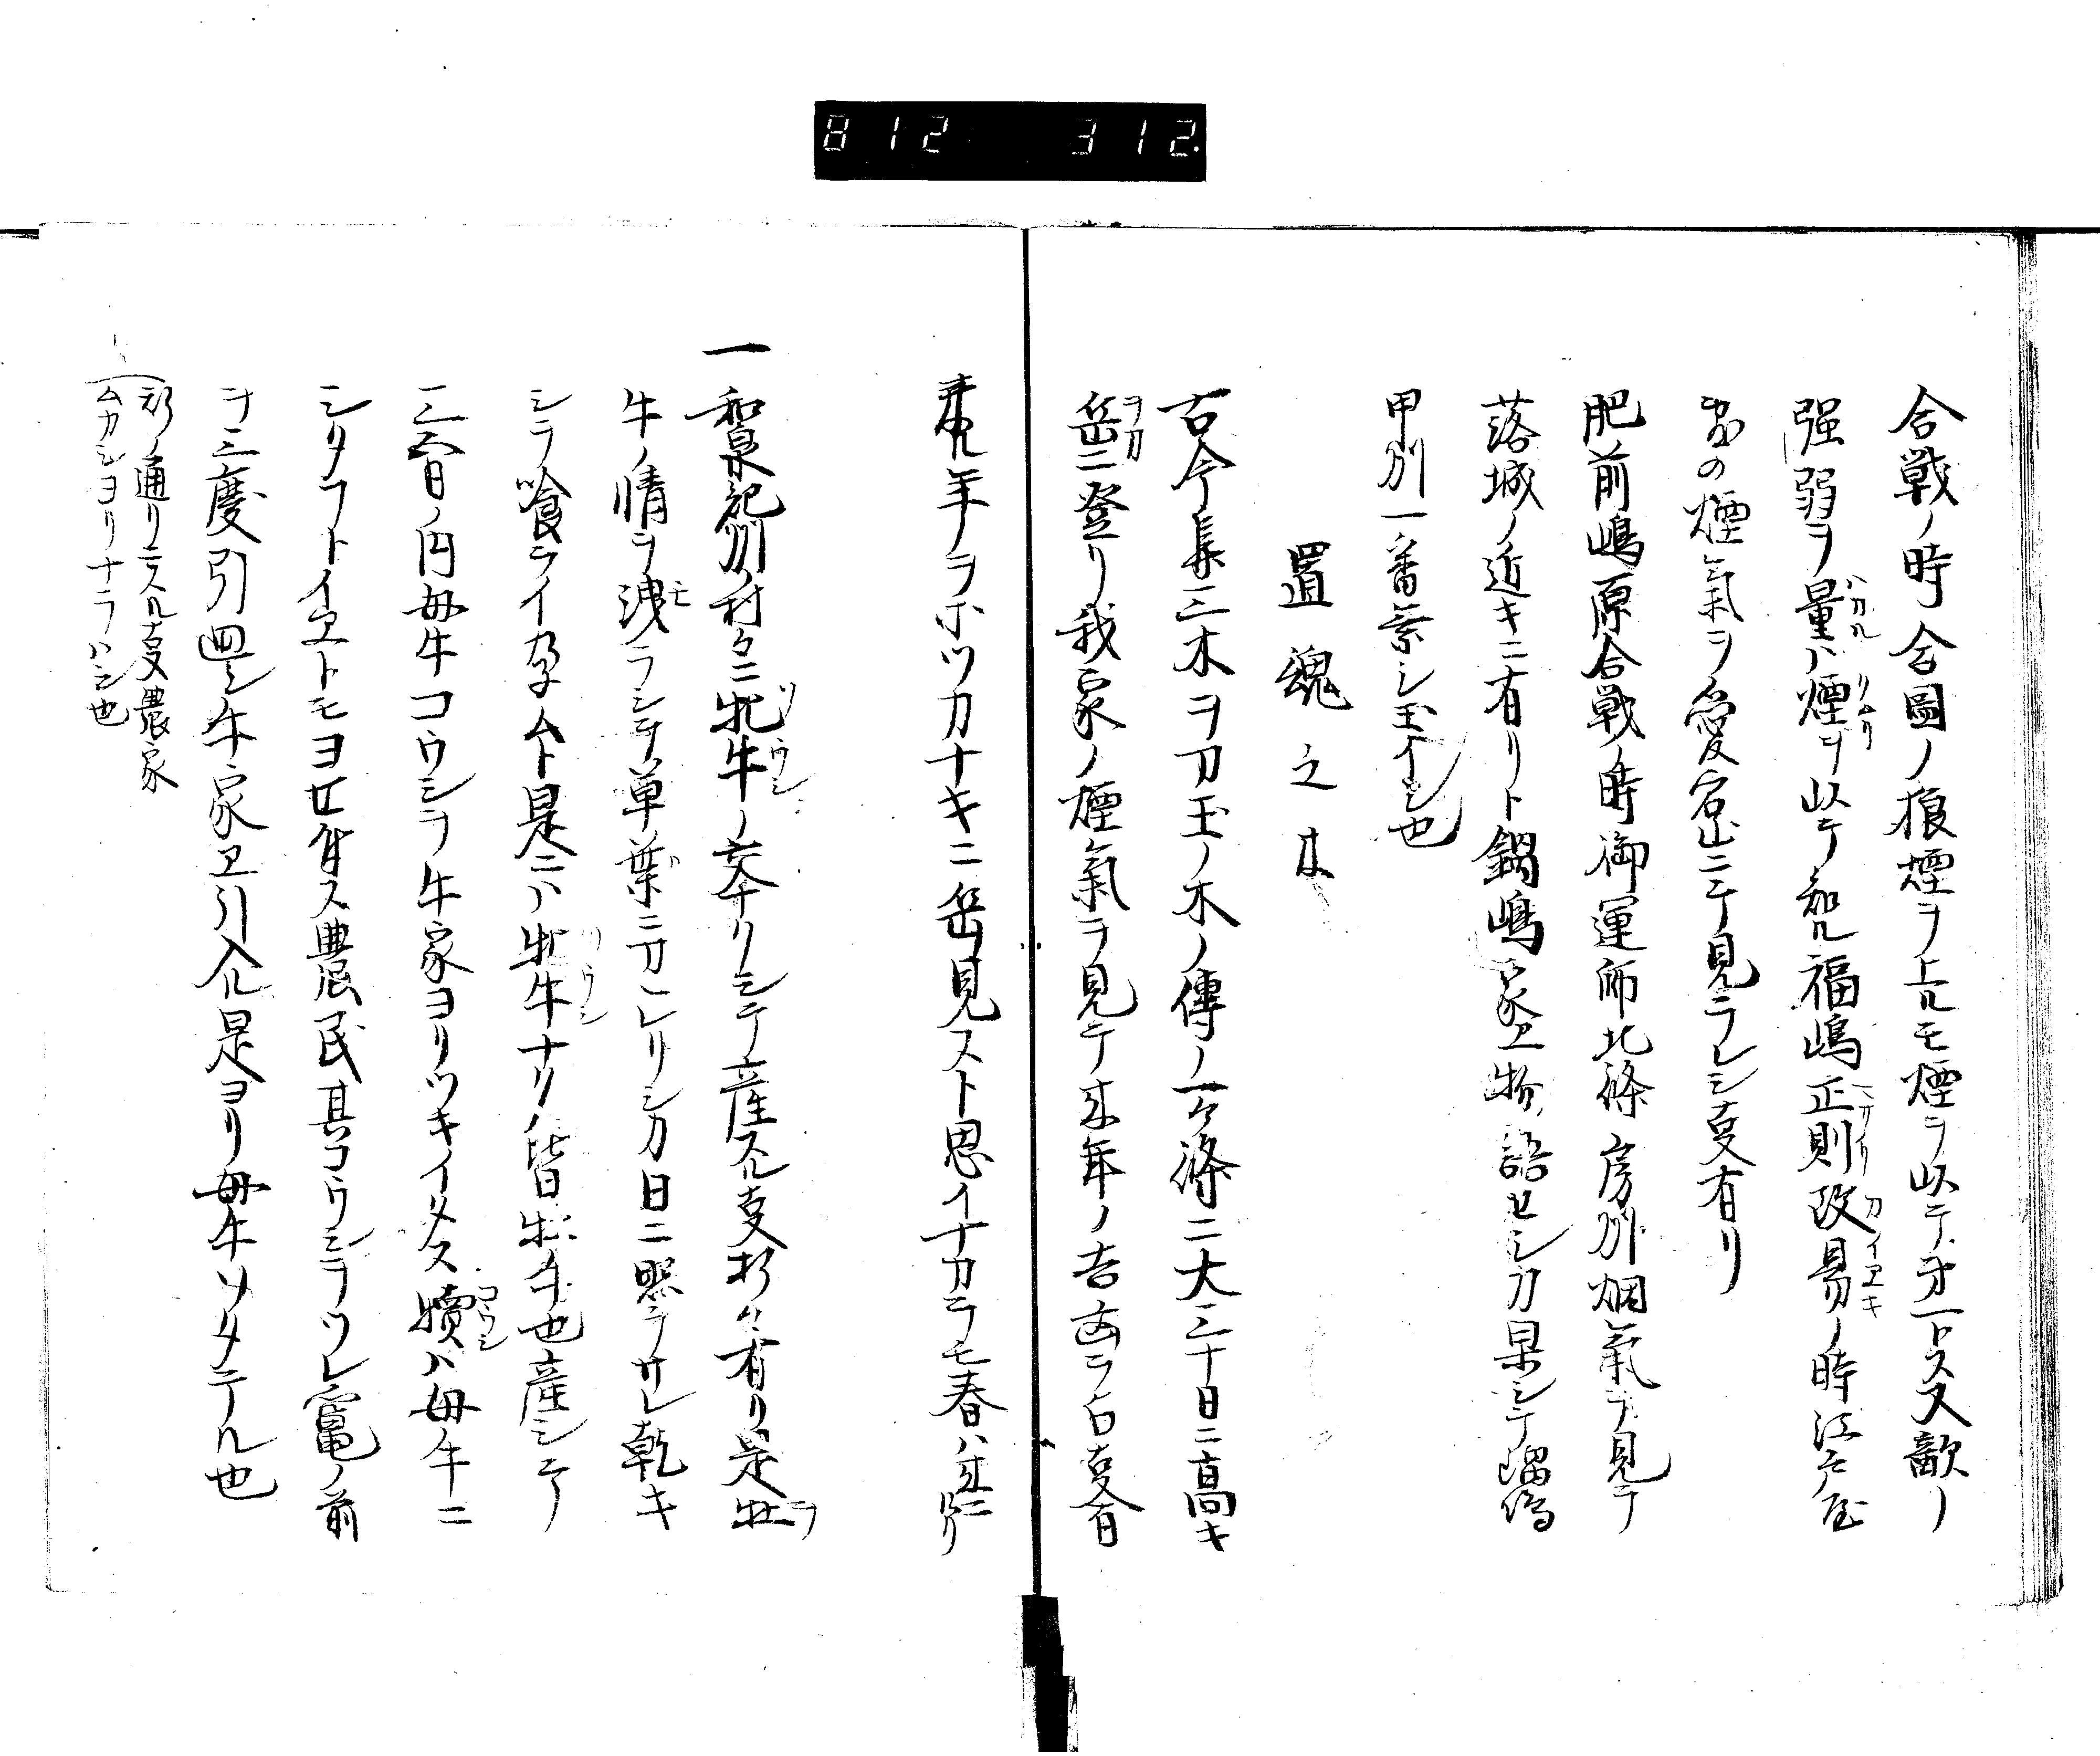 812 312.
合戦ノ時合圖ノ狼煙ヲ上ルモ煙ヲ以テ第一トス又敵ノ
強弱ヲ量ハ煙ヲ以テ知ル福嶋正則改易ノ時江戸屋
の煙氣ヲ愛宕山ニテ見ラレシ㕝有リ
肥前嶋原合戦ノ時御運師北條房州烟氣ヲ見テ
落城ノ近キニ有リト鍋嶋家エ物語セシカ果シテ
甲州一番乗シ玉イシ也
置魂之
古今集三木ヲ刀玉ノ木ノ傳ノ一ケ條ニ大三十日ニ高キ
岳ニ登リ我家ノ煙氣ヲ見テ来年ノ吉凶ヲ占㕝有
来ル年ノヲホツカナキニ岳見スト思イナカラモ春ハ来ニケリ
一和泉紀州ノ村々ニ牝牛ノ羍リシテ産スル㕝折々有リ是牡
牛ノ情ヲ洩ラシテ草葉ニカヽレリシカ日ニ照ラサレ乾キ
シヲ喰ライ孕ムト是ニハ牝牛ナリ皆牡牛也産シテ
二三日ノ内母牛コウシヲ牛家ヨリツキイタス犢ハ母牛ニ
シタフトイエトモヨセ付ス農民其コウシヲツレ竃ノ前
ヲ三度引廻シ牛家エ引入ル是ヨリ母牛ソタテル也
彩ノ通リニスル㕝農家
ムカシヨリナラハシ也